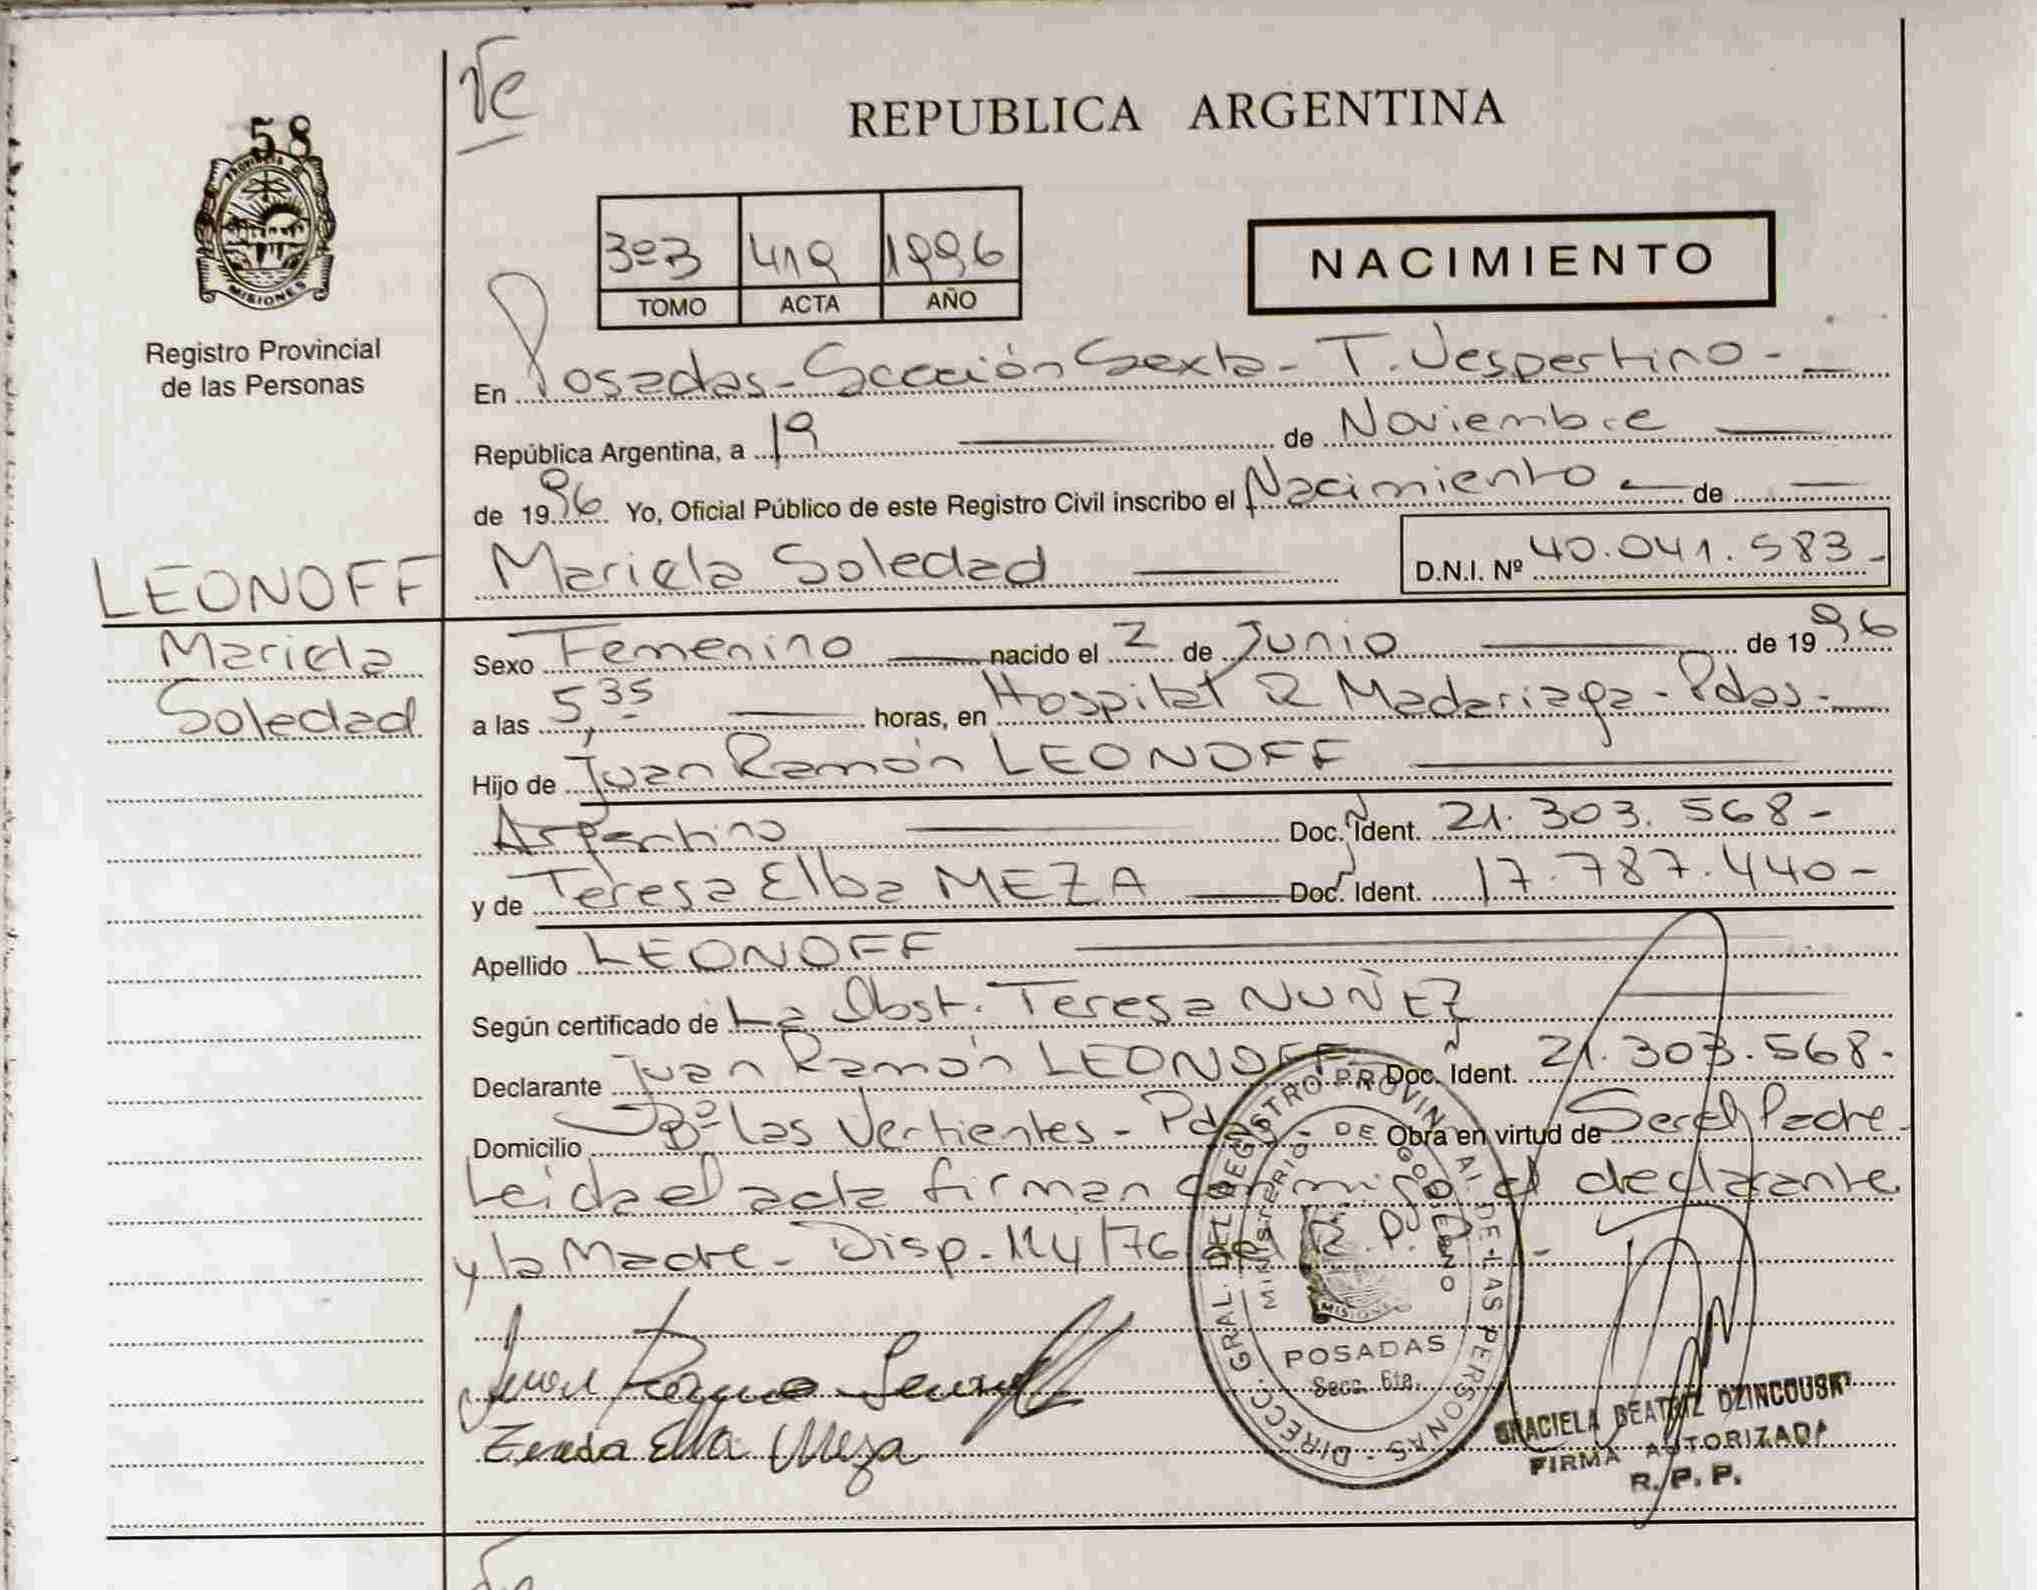 58
PROVINCIA DE
MISIONES
Registro Provincial
de las Personas
REPUBLICA ARGENTINA
3ºB 419 1996
TOMO ACTA AÑO
NACIMIENTO
En Posadas - Sección Sexta - T. Vespertino -
República Argentina, a 19 de Noviembre
de 1996 Yo, Oficial Público de este Registro Civil inscribo el Nacimiento de
LEONOFF Mariela Soledad D.N.I. Nº 40.041.583-
Mariela
Soledad
Sexo Femenino nacido el 2 de Junio de 1996
a las 5,35 horas, en Hospital R Madariaga - Pdas -
Hijo de Juan Ramón LEONOFF
Argentino Doc. Ident. 21.303.568-
y de Teresa Elba MEZA Doc. Ident. 17.787.440-
Apellido LEONOFF
Según certificado de La Obst. Teresa NUÑEZ
Declarante Juan Ramón LEONOFF Doc. Ident. 21.303.568-
Domicilio Bº Las Vertientes - Pdas - Obra en virtud de Ser el Padre -
Leida el acta firman conmigo el declarante
y la Madre - Disp. 114/76 del R.P.P. -
DIRECC. GRAL. DEL REGISTRO PROVINCIAL DE LAS PERSONAS
MINISTERIO DE GOBIERNO
MISIONES
POSADAS
Secc. 6ta.
Juan Ramon Leonoff
Teresa Elba Meza
GRACIELA BEATRIZ DZINCOUSKY
FIRMA AUTORIZADA
R. P. P.